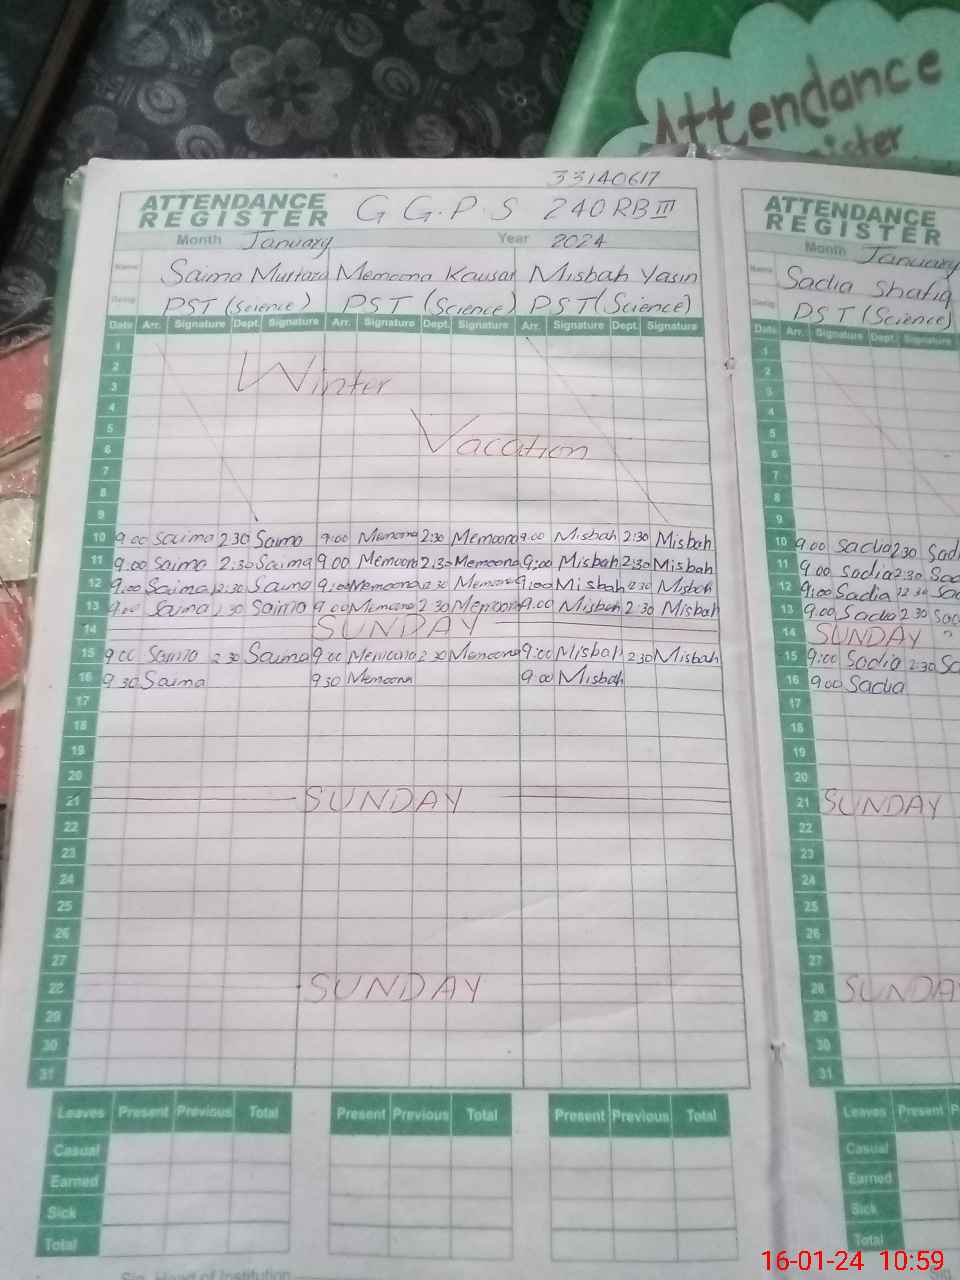 Attendance
33140617
ATTENDANCE REGISTER G G.P.S 240RB III
Month January Year 2024
Name Saima Murtaza Memoona Kausar Misbah Yasin
Desig PST (Science) PST (Science) PST (Science)
Date Arr. Signature Dept. Signature Arr. Signature Dept. Signature Arr. Signature Dept. Signature
1
2 Winter
3
4
5 Vacation
6
7
8
9
10 9.00 Saima 2 30 Saima 9:00 Memoona 2:30 Memoona 9.00 Misbah 2:30 Misbah
11 9.00 Saima 2:30 Saima 9.00 Memoona 2:30 Memoona 9:00 Misbah 2:30 Misbah
12 9:00 Saima 12:30 Saima 9:00 Memoona 12 30 Memoona 9:00 Misbah 12:30 Misbah
13 9:00 Saima 2:30 Saima 9.00 Memoona 2 30 Memoona 9.00 Misbah 2:30 Misbah
14 SUNDAY
15 9:00 Saima 2 30 Saima 9:00 Memoona 2 30 Memoona 9:00 Misbah 2 30 Misbah
16 9 30 Saima 9 30 Memoona 9:00 Misbah
17
18
19
20
21 SUNDAY
22
23
24
25
26
27
22 SUNDAY
29
30
31
Leaves Present Previous Total Present Previous Total Present Previous Total
Casual
Earned
Sick
Total
Sig. Head of Institution
ATTENDANCE REGISTER
Month January
Name Sadia Shafiq
Desig PST (Science)
Date Arr. Signature Dept. Signature
1
2
3
4
5
6
7
8
9
10 9.00 Sadia 2 30
11 9.00 Sadia 2:30
12 9:00 Sadia 12 30
13 9.00 Sadia 2 30
14 SUNDAY
15 9:00 Sadia 2:30
16 9.00 Sadia
17
18
19
20
21 SUNDAY
22
23
24
25
26
27
28 SUNDAY
29
30
31
Leaves Present
Casual
Earned
Sick
Total
16-01-24 10:59